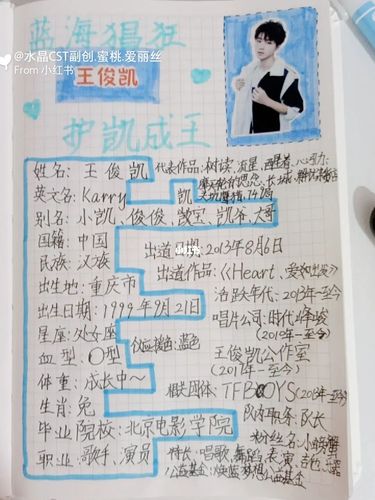 蓝海猖狂
@水晶CST副创.蜜桃.爱丽丝
From 小红书
王俊凯
护凯成王
姓名: 王俊凯
代表作品: 树读、流星、
英文名: Karry
摩天轮的思念、长城、
别名: 小凯、俊俊、凯爷、大哥
国籍: 中国
出道日期: 2013年8月6日
民族: 汉族
出道作品:《Heart、爱和出发》
出生地: 重庆市
活跃年代: 2013年—至今
出生日期: 1999年9月21日
唱片公司: 时代峰峻
(2010年—至今)
星座: 处女座
应援色: 蓝色
血型: O型
王俊凯工作室
(2017年—至今)
体重: 成长中~
相关团体: TFBOYS(2013年—至今)
生肖: 兔
队内职务: 队长
毕业院校: 北京电影学院
粉丝名: 小螃蟹
职业: 歌手、演员
特长: 唱歌、舞蹈、表演、吉他
公益基金: 焕蓝梦想公益基金